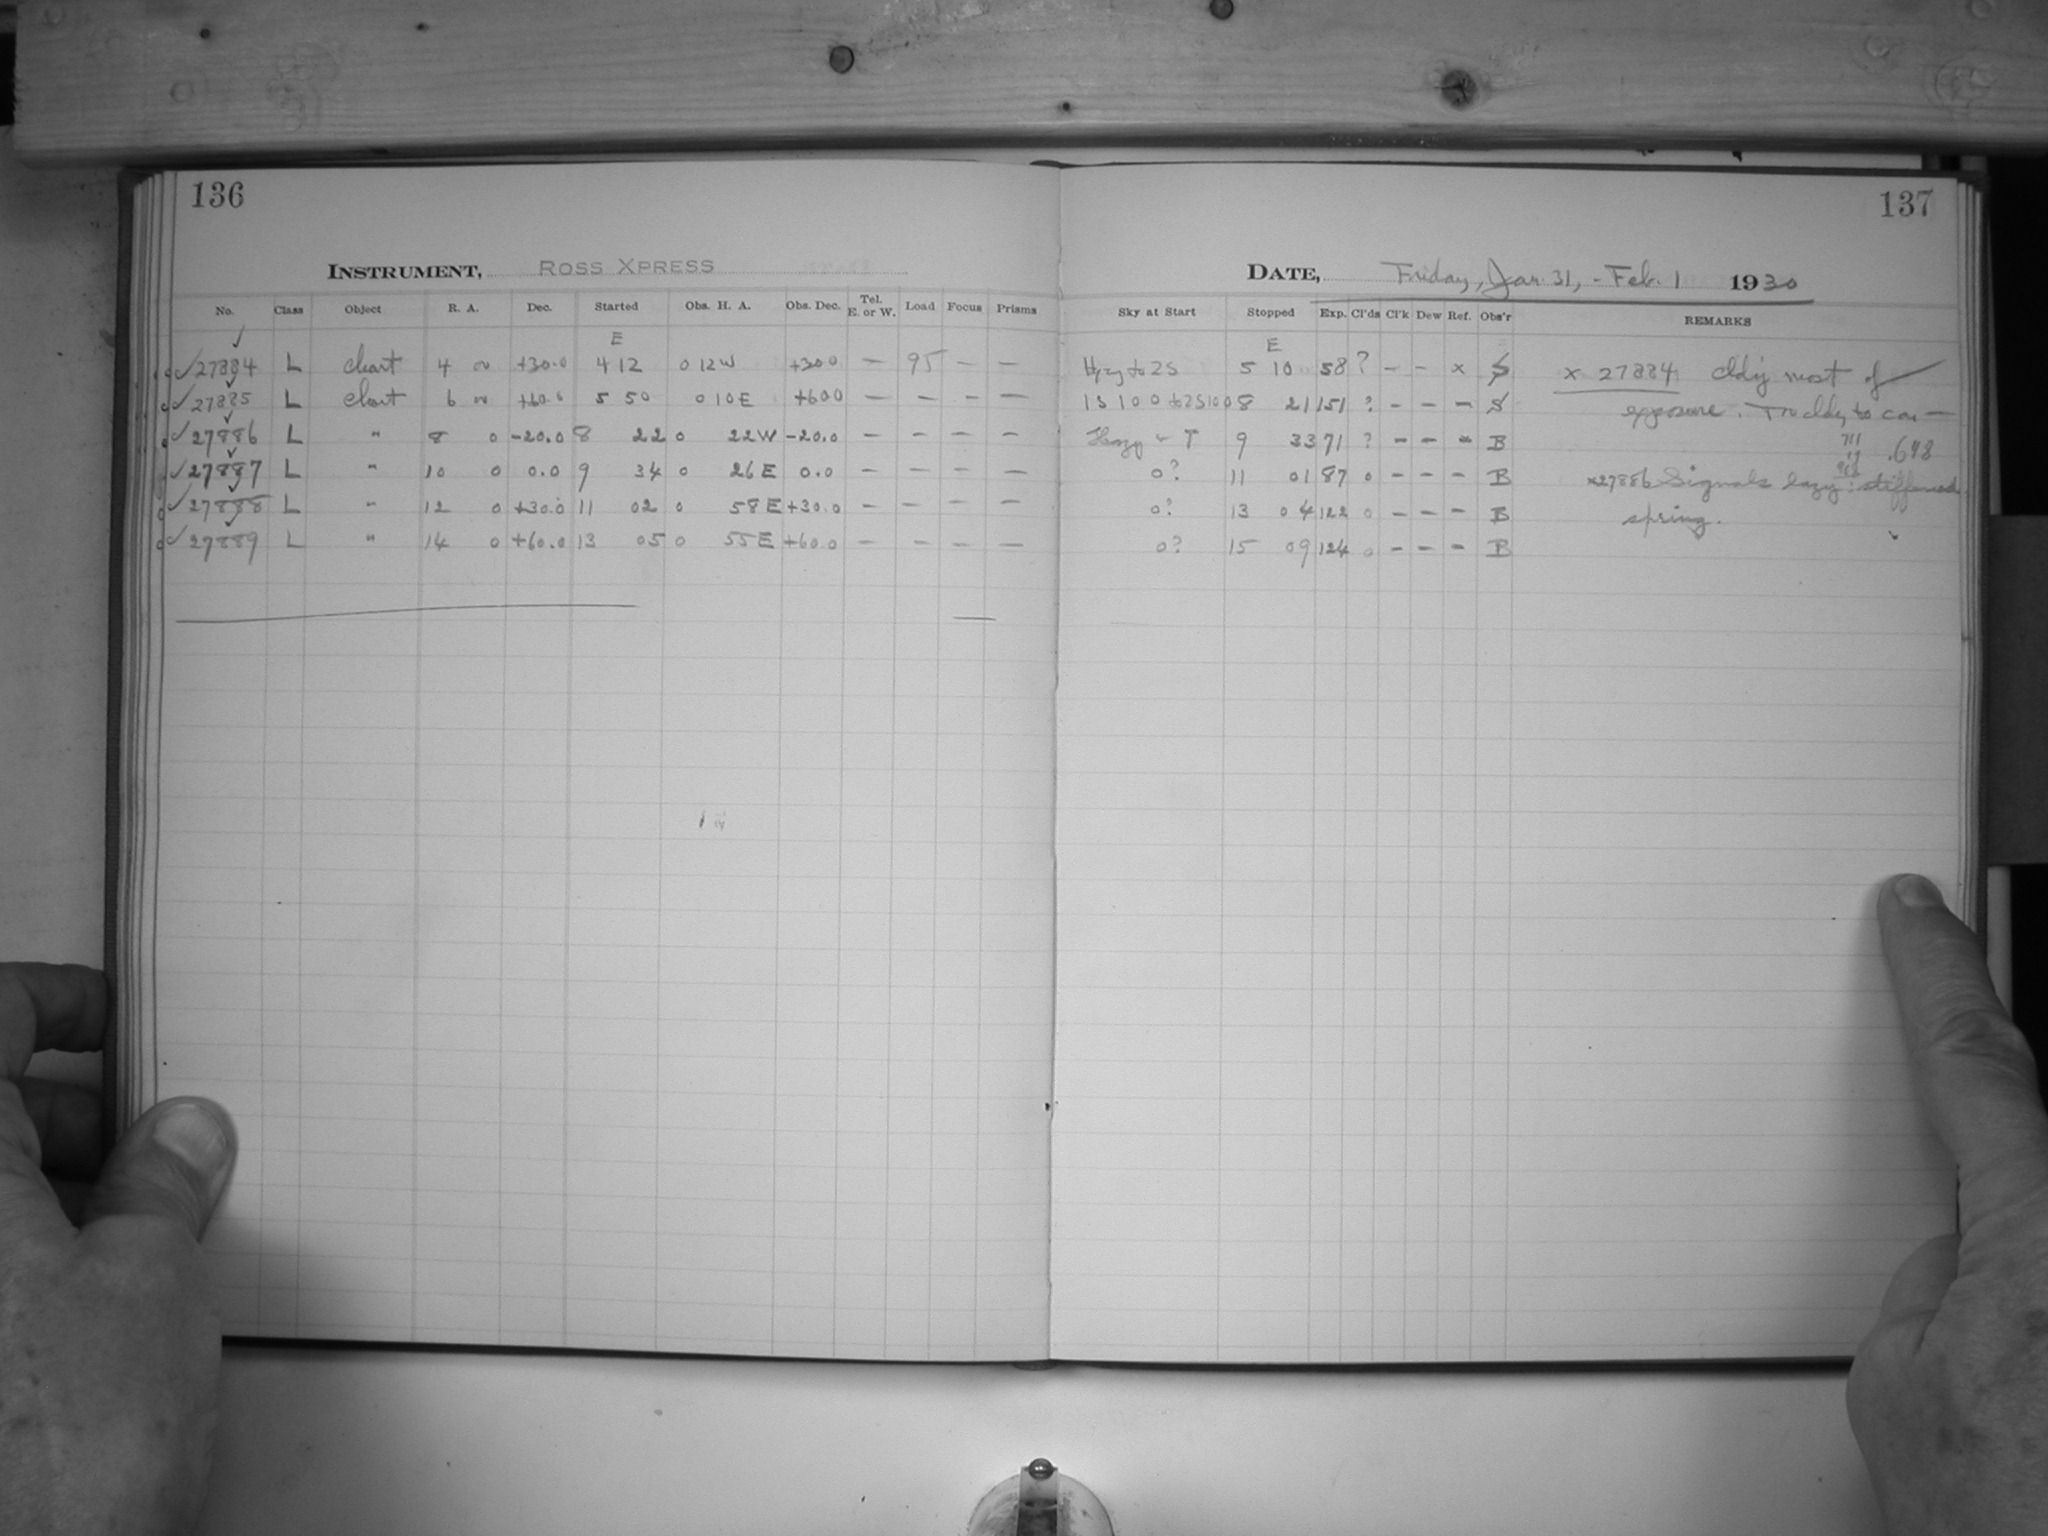 136
137
INSTRUMENT, ROSS XPRESS
DATE, Friday, Jan. 31, - Feb. 1 1930
No. Class Object R. A. Dec. Started Obs. H. A. Obs. Dec. Tel. E. or W. Load Focus Prisms Sky at Start Stopped Exp. Cl'ds Cl'k Dew Ref. Obs'r REMARKS
E E
✓27884 L chart 4 +30.0 4 12 0 12W +300 — 95 — — Hazy to 2S 5 10 58 ? - - x S x 27884 cldy most of
✓27885 L chart 6 +60.0 5 50 0 10E +600 — — — — 1S 100 to 2S100 8 21 151 ? - - - S exposure. Too cldy to con —
✓27886 L " 8 0 -20.0 8 22 0 22W -20.0 — — — — Hazy + T 9 33 71 ? - - B .648
✓27887 L " 10 0 0.0 9 34 0 26E 0.0 — — — — 0? 11 01 87 0 - - - B x27886 Signals lazy: stiffened
✓27888 L " 12 0 +30.0 11 02 0 58E +30.0 — — — — 0? 13 04 122 0 - - - B spring.
✓27889 L " 14 0 +60.0 13 05 0 55E +60.0 — — — — 0? 15 09 124 0 - - - B